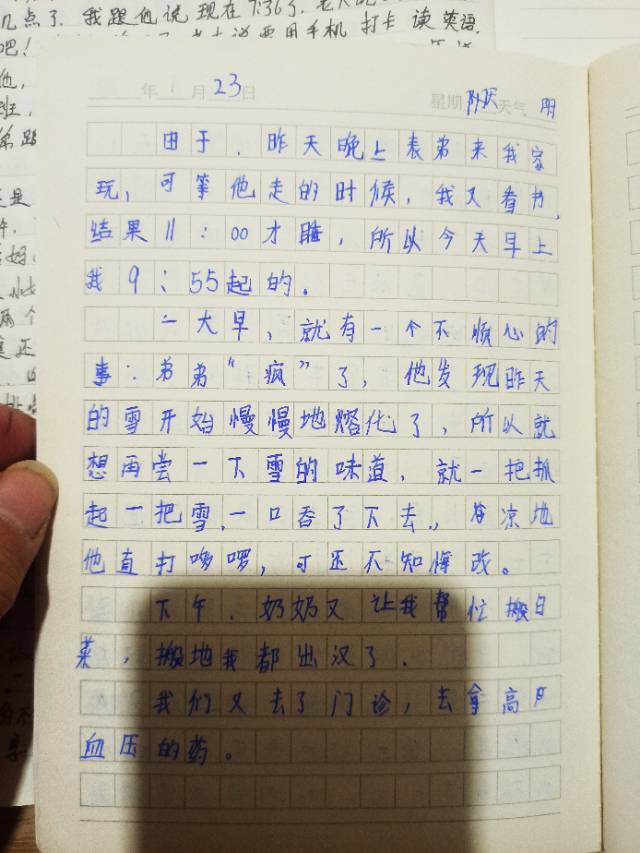 几点了.我跟他说现在7:36了.
用手机打卡读英语.
吧!
他,
班,
年1月23日 星期 阴天气 阴
由于.昨天晚上表弟来我家
玩,可等他走的时候,我又看书,
结果11:00才睡,所以今天早上
我9:55起的.
一大早,就有一个不顺心的
事:弟弟“疯”了,他发现昨天
的雪开始慢慢地熔化了,所以就
想再尝一下雪的味道.就一把抓
起一把雪.一口吞了下去.,冷凉地
他直打哆啰,可还不知悔改。
下午.奶奶又让我帮忙搬白
菜,搬地我都出汉了.
我们又去了门诊,去拿高
血压的药。